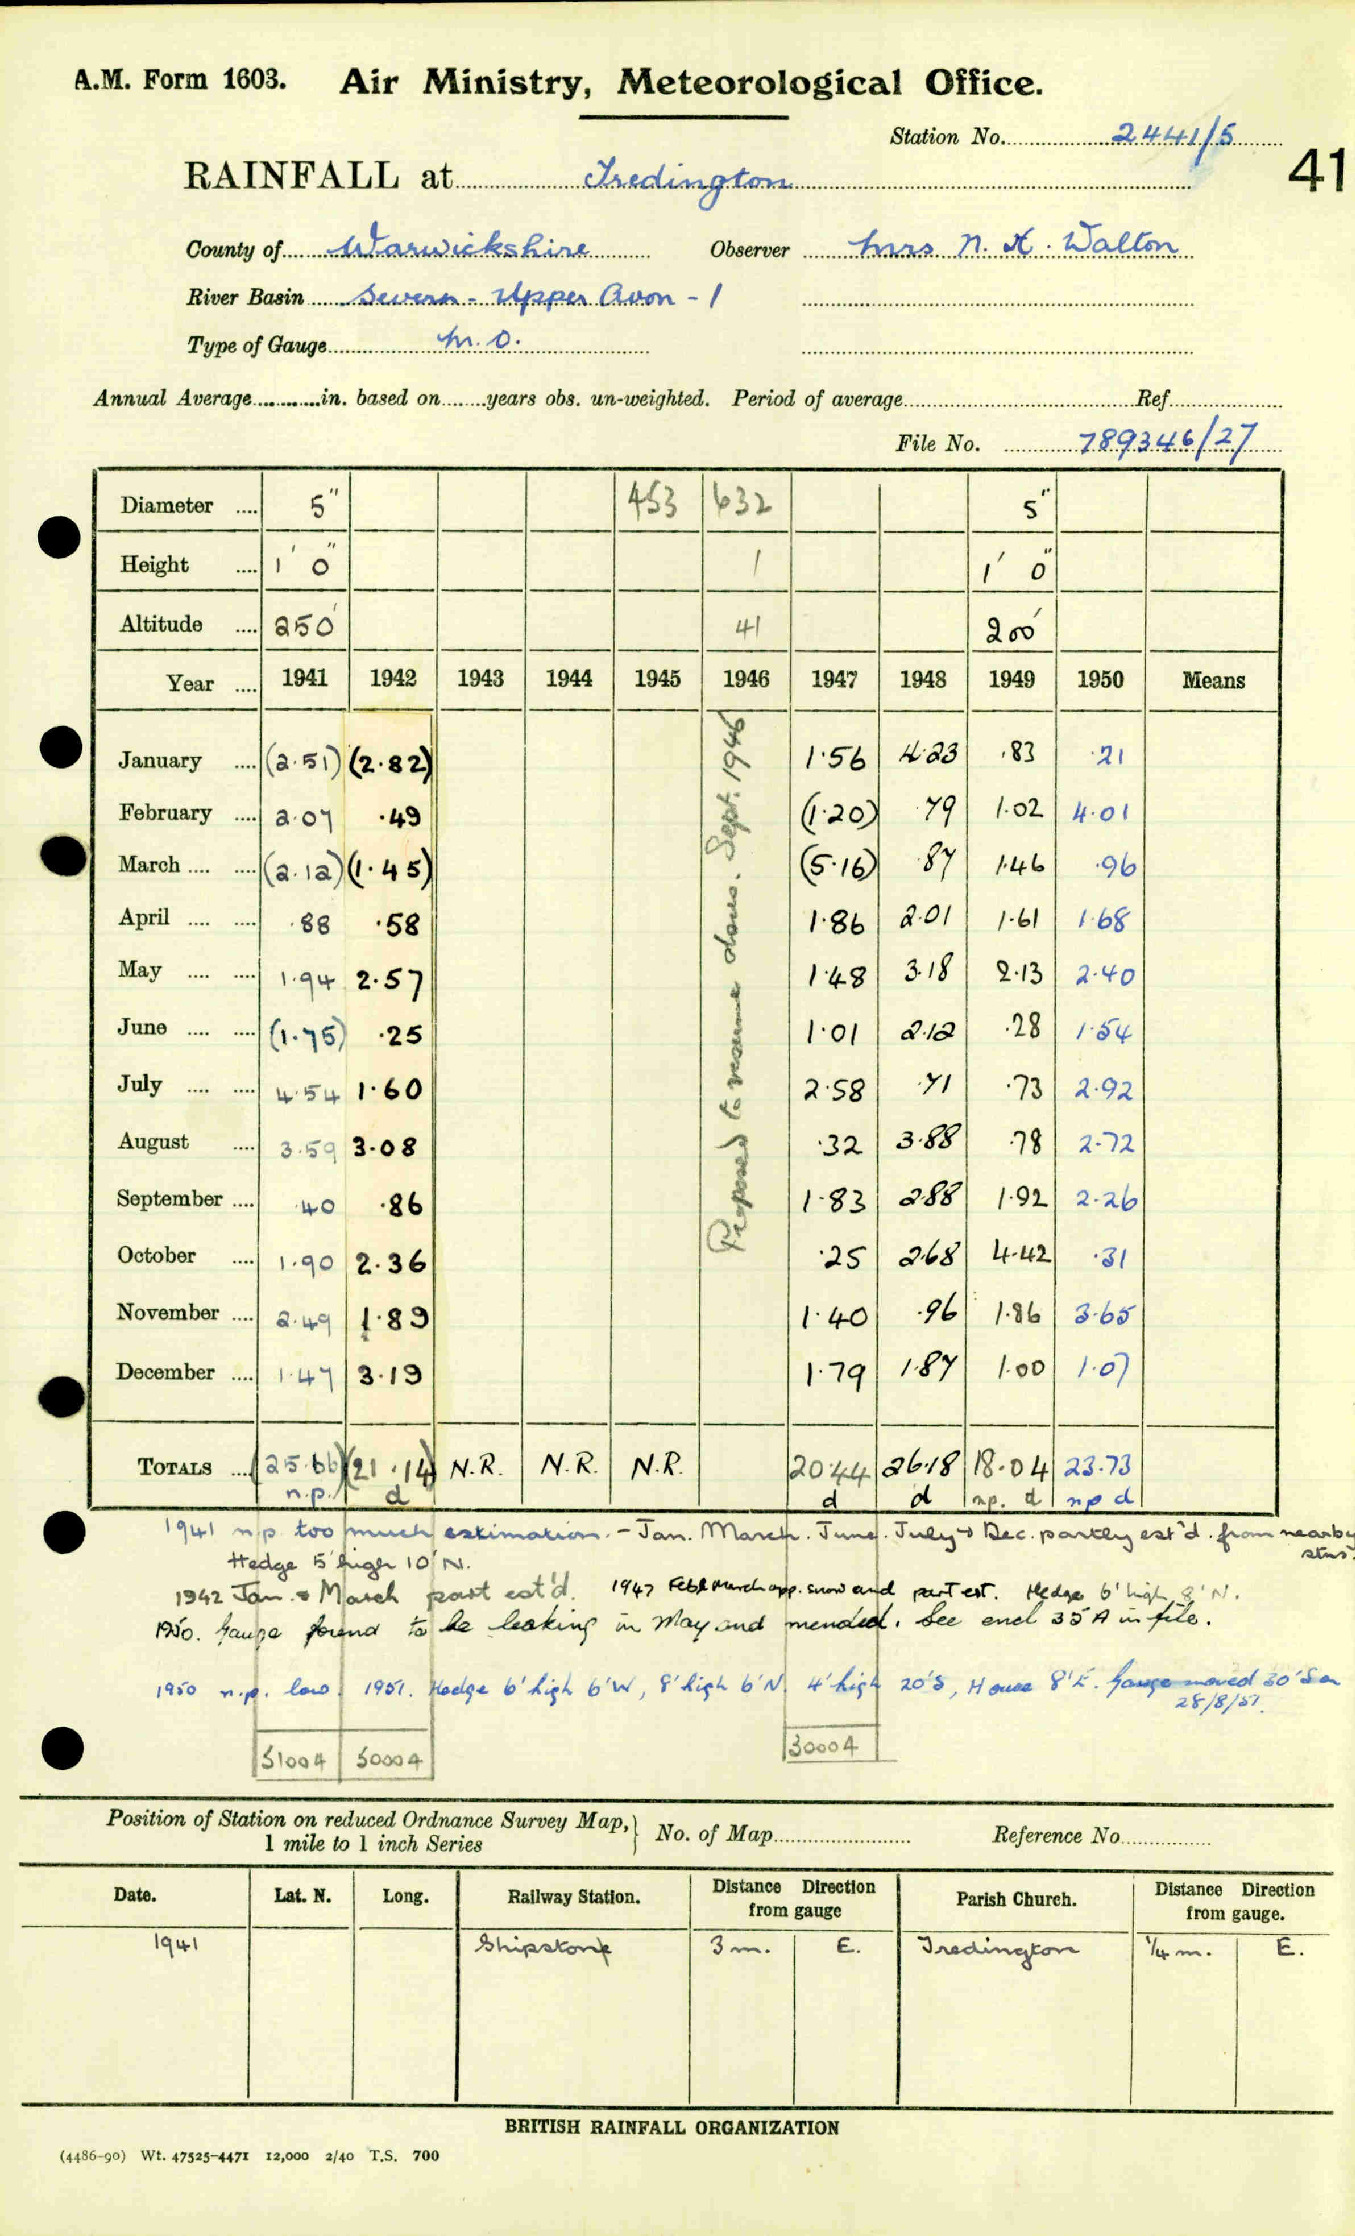 A.M. Form 1603. Air Ministry, Meteorological Office.
Station No. 2441/5
41
RAINFALL at Tredington
County of Warwickshire Observer Mrs N. K. Walton
River Basin Severn - Upper Avon - 1
Type of Gauge M.O.
Annual Average in. based on years obs. un-weighted. Period of average Ref
File No. 789346/27
Diameter .... 5" 453 632 5"
Height .... 1' 0" 1 1' 0"
Altitude .... 250' 41 200'
Year .... 1941 1942 1943 1944 1945 1946 1947 1948 1949 1950 Means
Proposed to resume obsns. Sept. 1946
January .... (2.51) (2.82) 1.56 4.23 .83 .21
February .... 2.07 .49 (1.20) .79 1.02 4.01
March .... .... (2.12) (1.45) (5.16) .87 1.46 .96
April .... .... .88 .58 1.86 2.01 1.61 1.68
May .... .... 1.94 2.57 1.48 3.18 2.13 2.40
June .... .... (1.75) .25 1.01 2.12 .28 1.54
July .... .... 4.54 1.60 2.58 .71 .73 2.92
August .... 3.59 3.08 .32 3.88 .78 2.72
September .... .40 .86 1.83 2.88 1.92 2.26
October .... 1.90 2.36 .25 2.68 4.42 .31
November .... 2.49 1.89 1.40 .96 1.86 3.65
December .... 1.47 3.19 1.79 1.87 1.00 1.07
TOTALS .... (25.66) (21.14) N.R. N.R. N.R. 20.44 26.18 18.04 23.73
n.p. d d d n.p. d n p d
1941 n.p. too much estimation. - Jan. March. June. July & Dec. partly est'd. from nearby stns.
Hedge 5' high 10' N.
1942 Jan. & March part est'd. 1947 Feb & March app. snow and part est. Hedge 6' high 8' N.
1950. Gauge found to be leaking in May and mended. See encl 35A in file.
1950 n.p. low. 1951. Hedge 6' high 6' W, 8' high 6' N. 4' high 20' S, House 8' E. Gauge moved 30' S on
28/8/51.
51004 50004 30004
Position of Station on reduced Ordnance Survey Map, } No. of Map Reference No
1 mile to 1 inch Series
Date. Lat. N. Long. Railway Station. Distance Direction from gauge Parish Church. Distance Direction from gauge.
1941 Shipston 3 m. E. Tredington 1/4 m. E.
BRITISH RAINFALL ORGANIZATION
(4486-90) Wt. 47525-4471 12,000 2/40 T.S. 700